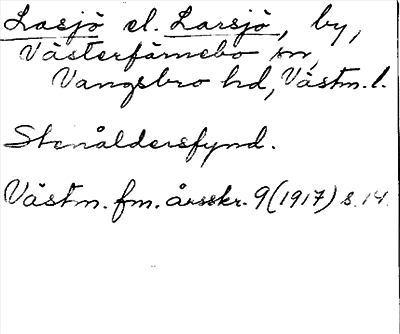 Lasjö el. Larsjö, by,
Västerfärnebo sn,
Vangsbro hd, Västm. l.
Stenåldersfynd.
Västm. fm. årsskr. 9 (1917) s. 14.